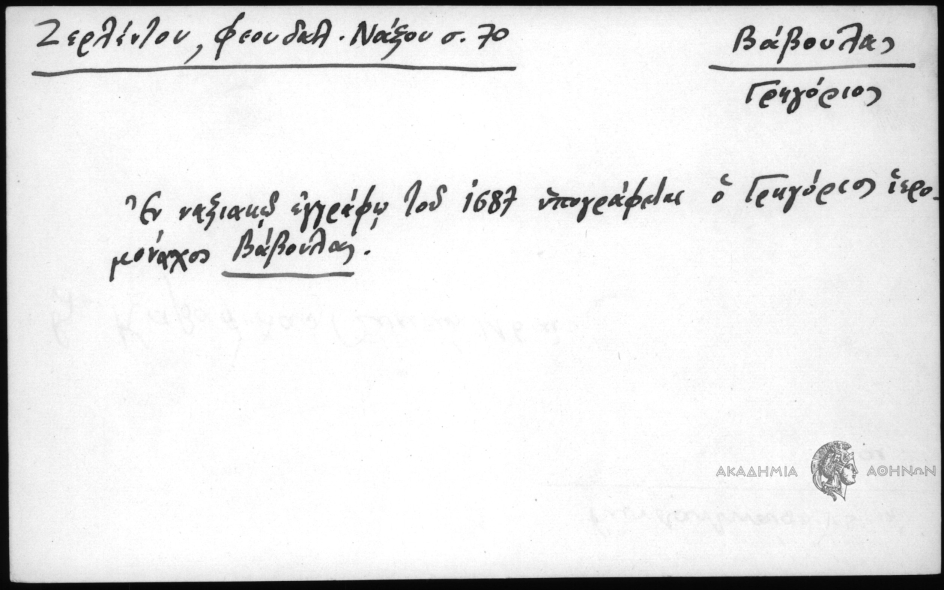 Ζερλέντου, Φεουδαλ. Νάξου σ. 70
Βάβουλας
Γρηγόριος
Ἐν ναξιακῷ ἐγγράφῳ τοῦ 1687 ὑπογράφεται ὁ Γρηγόριος ἱερο-
μόναχος Βάβουλας.
ΑΚΑΔΗΜΙΑ ΑΘΗΝΩΝ